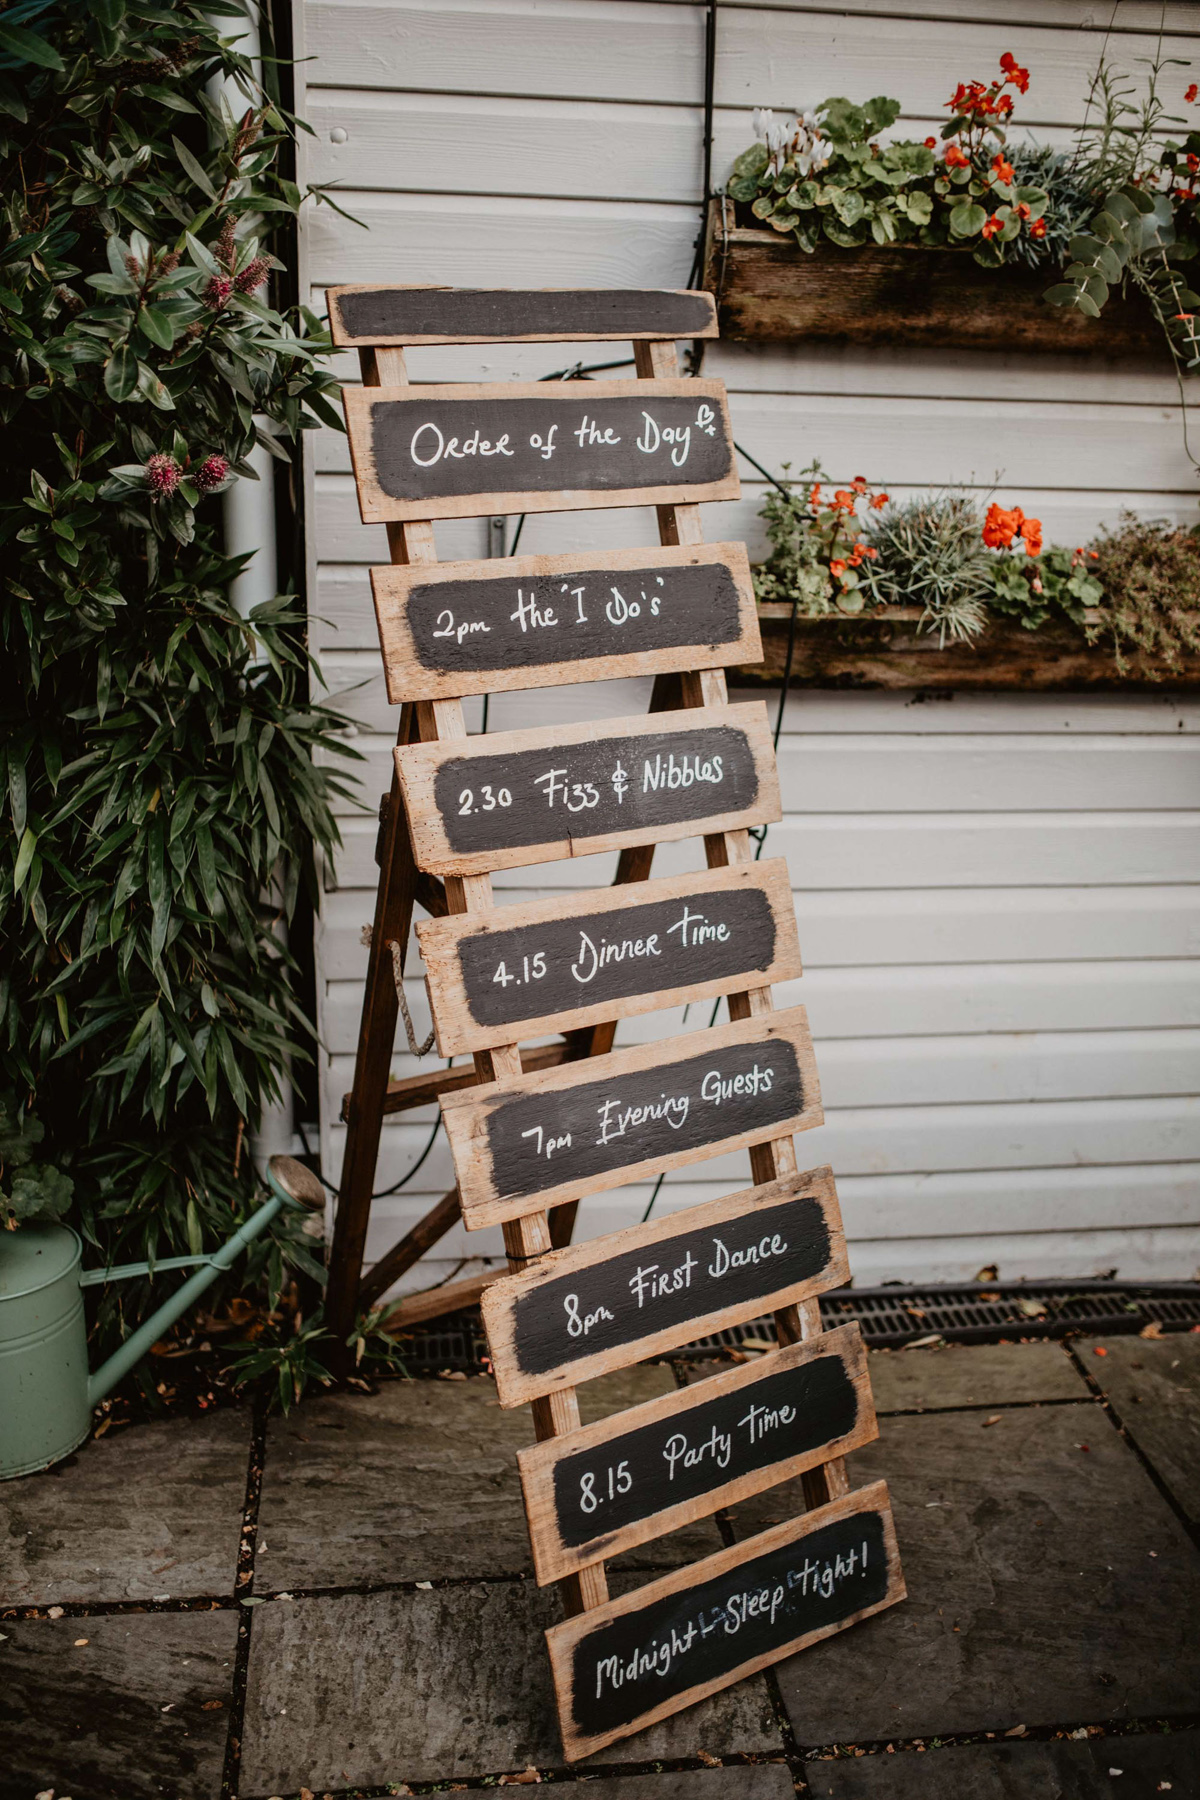 Order of the Day
2pm the "I Do's"
2.30 Fizz & Nibbles
4.15 Dinner Time
7pm Evening Guests
8pm First Dance
8.15 Party Time
Midnight - Sleep tight!